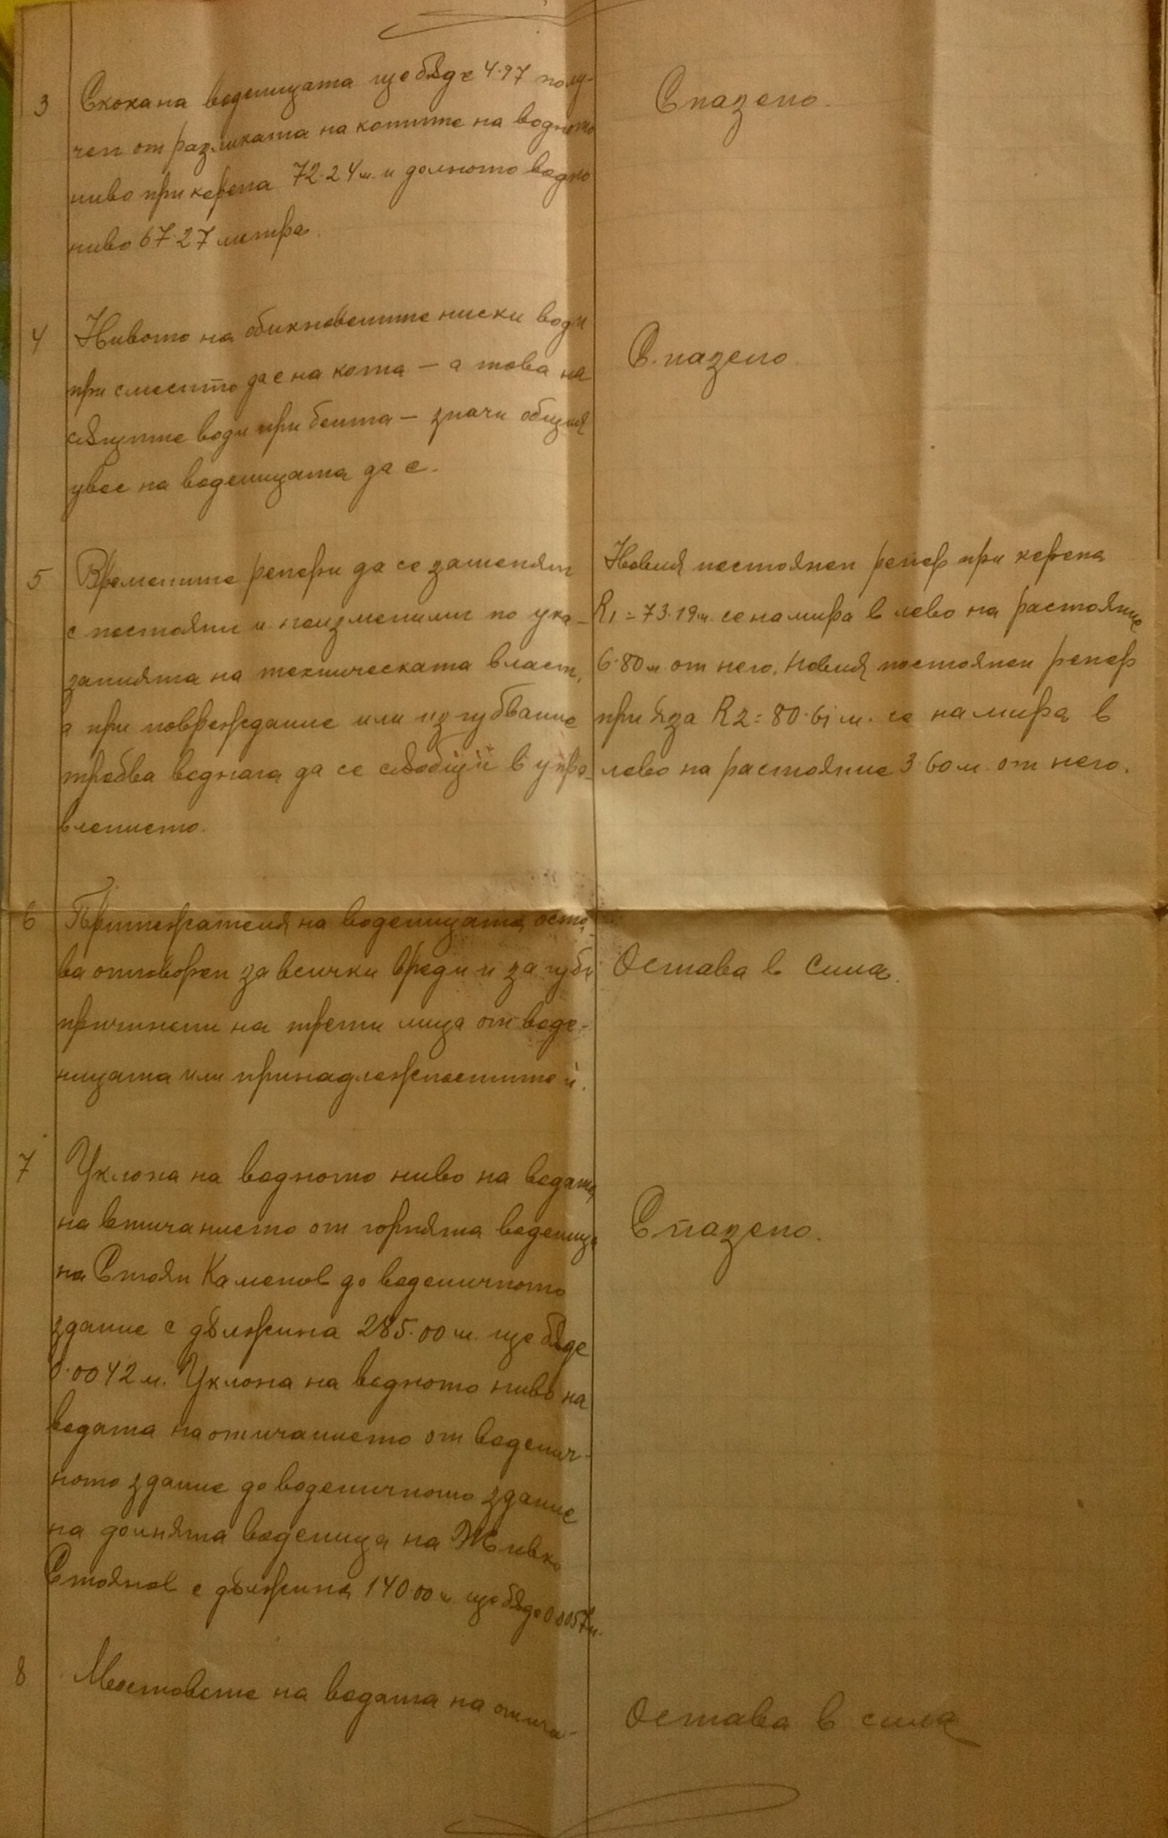 3
Скока на воденицата ще бѫде 4·97 полу-
чен от разликата на котите на водното
ниво при керепа 72·24 м. и долното водно
ниво 67·27 метра.
Спазено.
4
Нивото на обикновените ниски води
при да е на кота — а това на
сѫщите води при бента — значи общия
увес на воденицата да е.
Спазено.
5
Времените репери да се заменят
с постоянни и неизменими по ука-
занията на техническата власт,
а при повреждание или изгубвание
требва веднага да се сѫобщи в упра-
влението.
Новия постоянен репер при керепа
R1 = 73·19 м. се намира в лево на растояние
6·80 м от него. Новия постоянен репер
при яза R2 = 80·61 м. се намира в
лево на растояние 3·60 м. от него.
6
Притежателя на воденицата оста-
ва отговорен за всички вреди и загуби
причинени на трети лица от воде-
ницата или принадлежностите ѝ.
Остава в сила.
7
Уклона на водното ниво на водата
на втичанието от горнята воденица
на Стоян Каменов до воденичното
здание с дѫлжина 285·00 м. ще бѫде
0·0042 м. Уклона на водното ниво на
водата на отичанието от воденич-
ното здание до воденичното здание
на долнята воденица на Живко
Стоянов с дѫлжина 140·00 м ще бѫде 0·0057 м.
Спазено.
8
на водата на отича-
Остава в сила